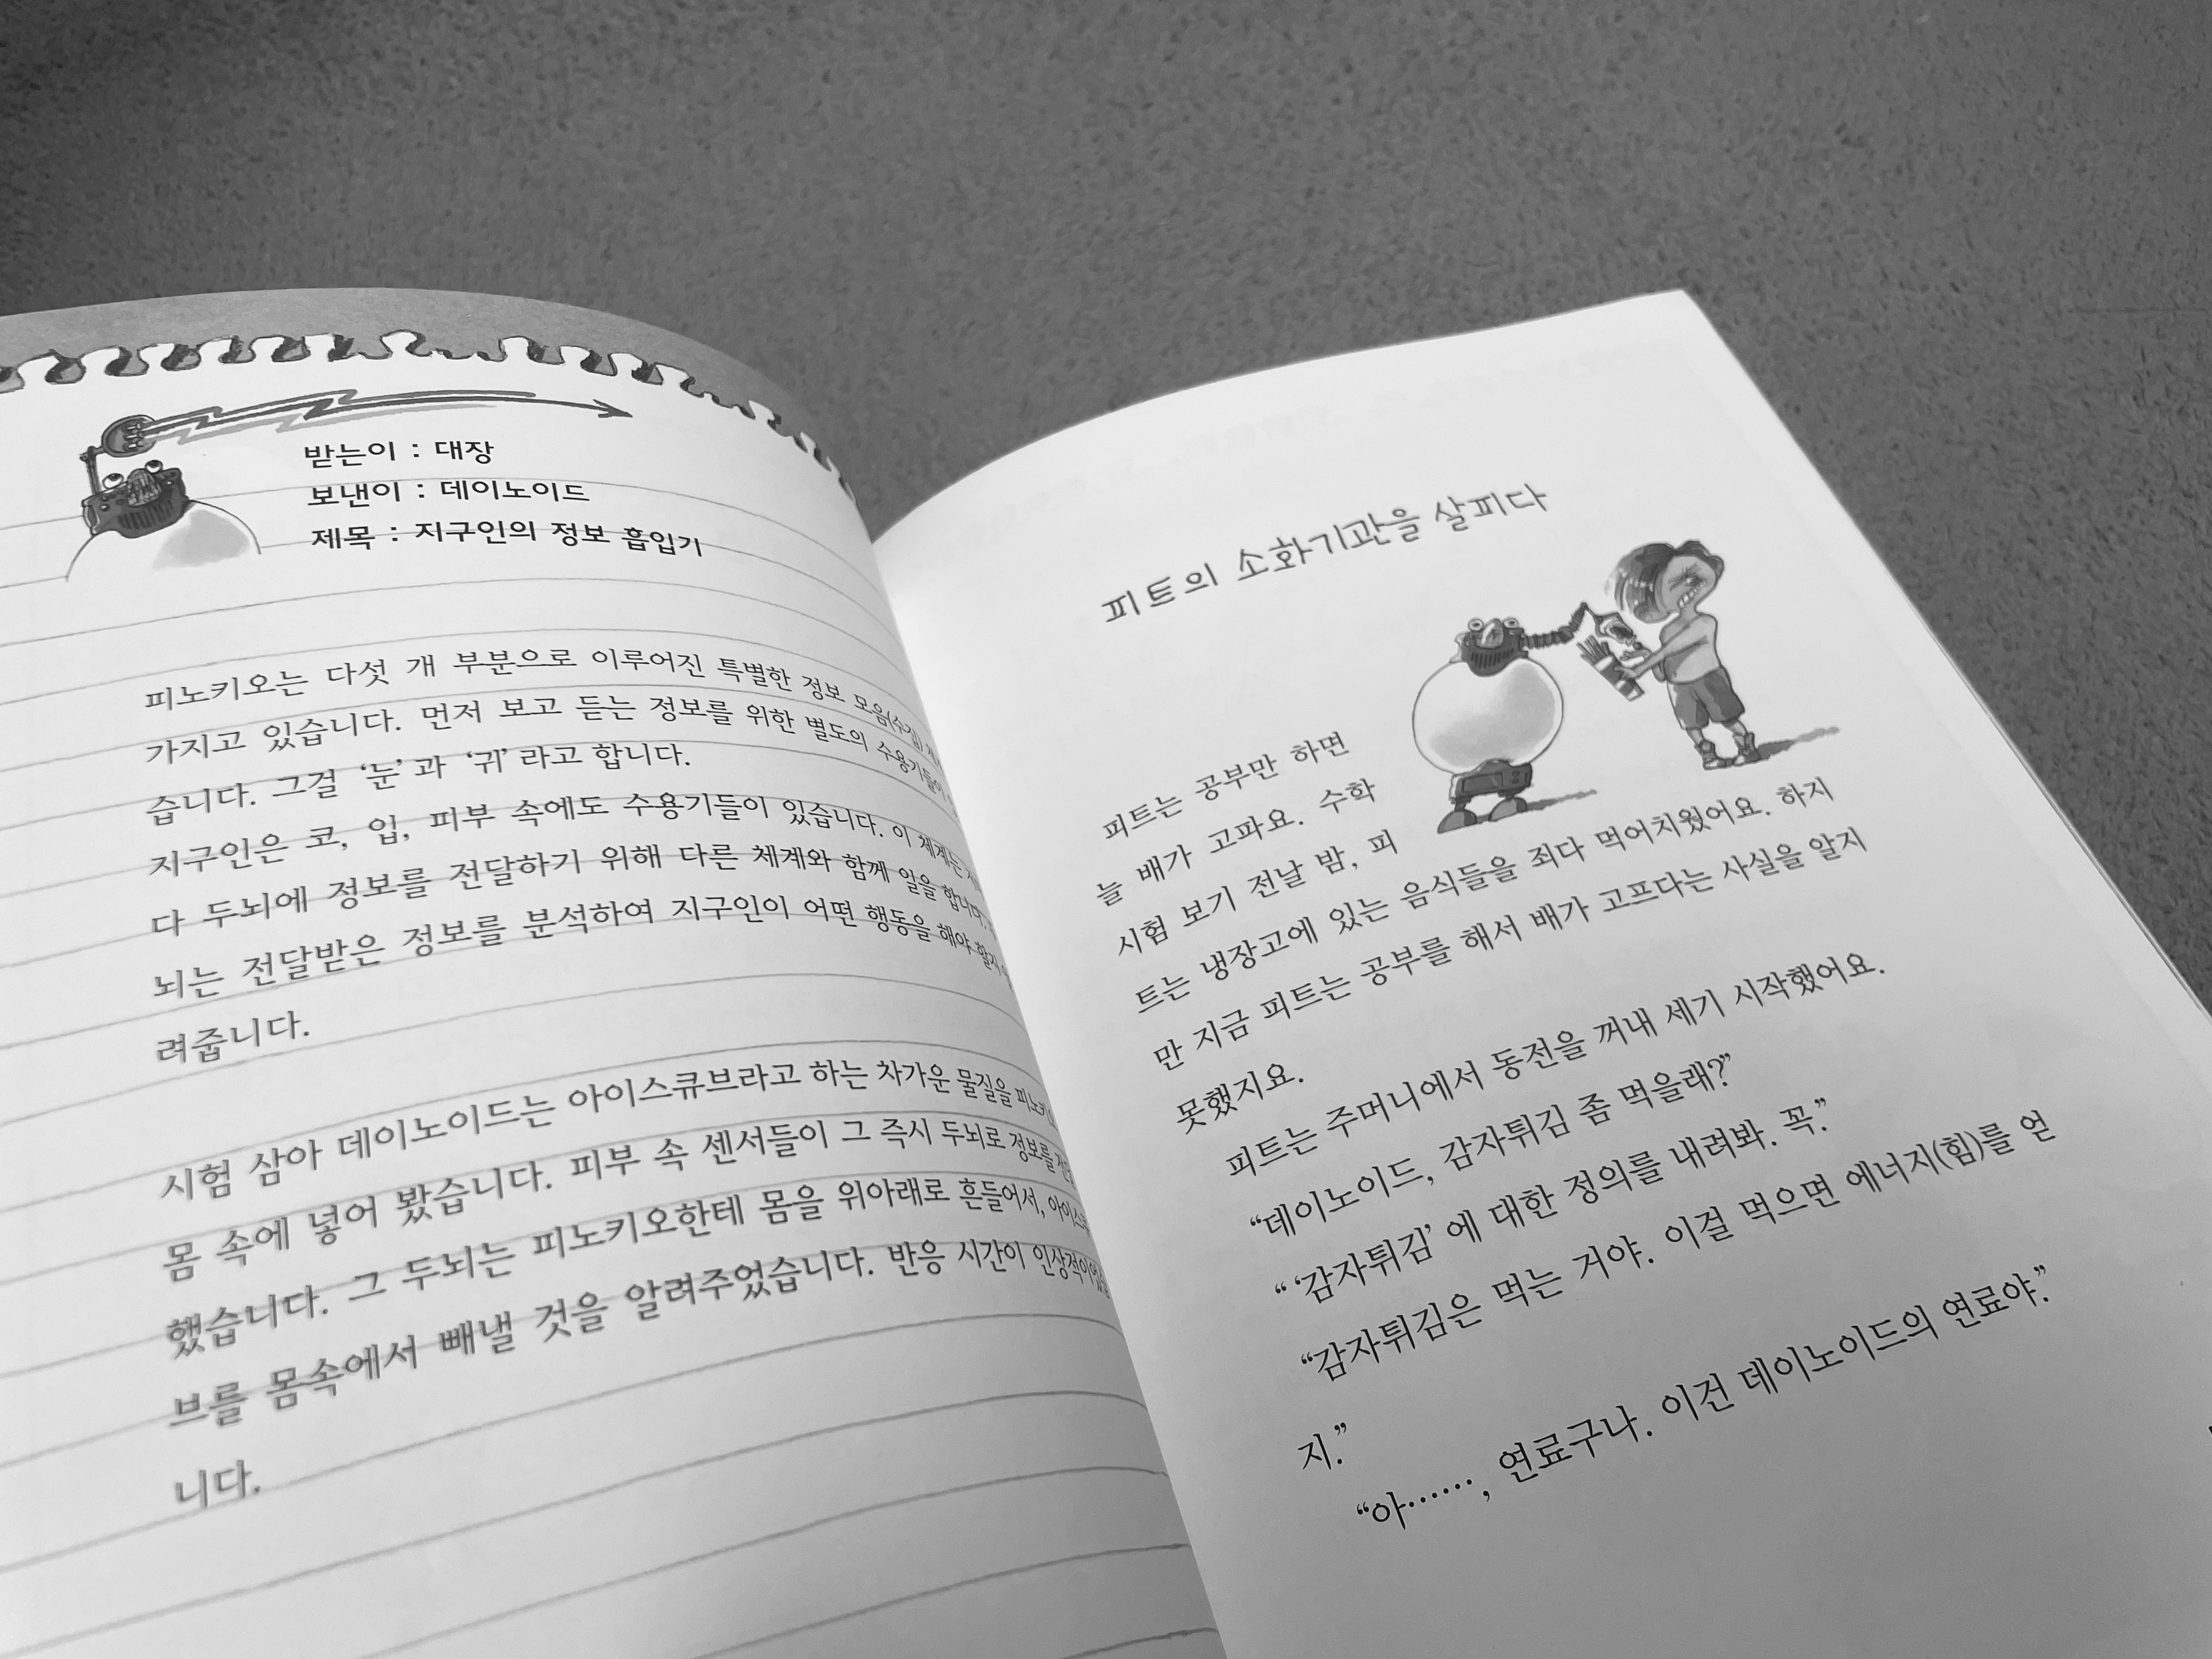 받는이 : 대장
보낸이 : 데이노이드
제목 : 지구인의 정보 흡입기
피노키오는 다섯 개 부분으로 이루어진 특별한 정보 모음(수집)
가지고 있습니다. 먼저 보고 듣는 정보를 위한 별도의 수용기들이
습니다. 그걸 ‘눈’과 ‘귀’라고 합니다.
지구인은 코, 입, 피부 속에도 수용기들이 있습니다. 이 체계는
다 두뇌에 정보를 전달하기 위해 다른 체계와 함께 일을 합니다.
뇌는 전달받은 정보를 분석하여 지구인이 어떤 행동을 해야 할지
려줍니다.
시험 삼아 데이노이드는 아이스큐브라고 하는 차가운 물질을
몸 속에 넣어 봤습니다. 피부 속 센서들이 그 즉시 두뇌로 정보를
했습니다. 그 두뇌는 피노키오한테 몸을 위아래로 흔들어서,
브를 몸속에서 빼낼 것을 알려주었습니다. 반응 시간이
니다.
피트의 소화기관을 살피다
피트는 공부만 하면
늘 배가 고파요. 수학
시험 보기 전날 밤, 피
트는 냉장고에 있는 음식들을 죄다 먹어치웠어요. 하지
만 지금 피트는 공부를 해서 배가 고프다는 사실을 알지
못했지요.
피트는 주머니에서 동전을 꺼내 세기 시작했어요.
“데이노이드, 감자튀김 좀 먹을래?”
“ ‘감자튀김’ 에 대한 정의를 내려봐. 꼭.”
“감자튀김은 먹는 거야. 이걸 먹으면 에너지(힘)를 얻
지.”
“아……, 연료구나. 이건 데이노이드의 연료야.”